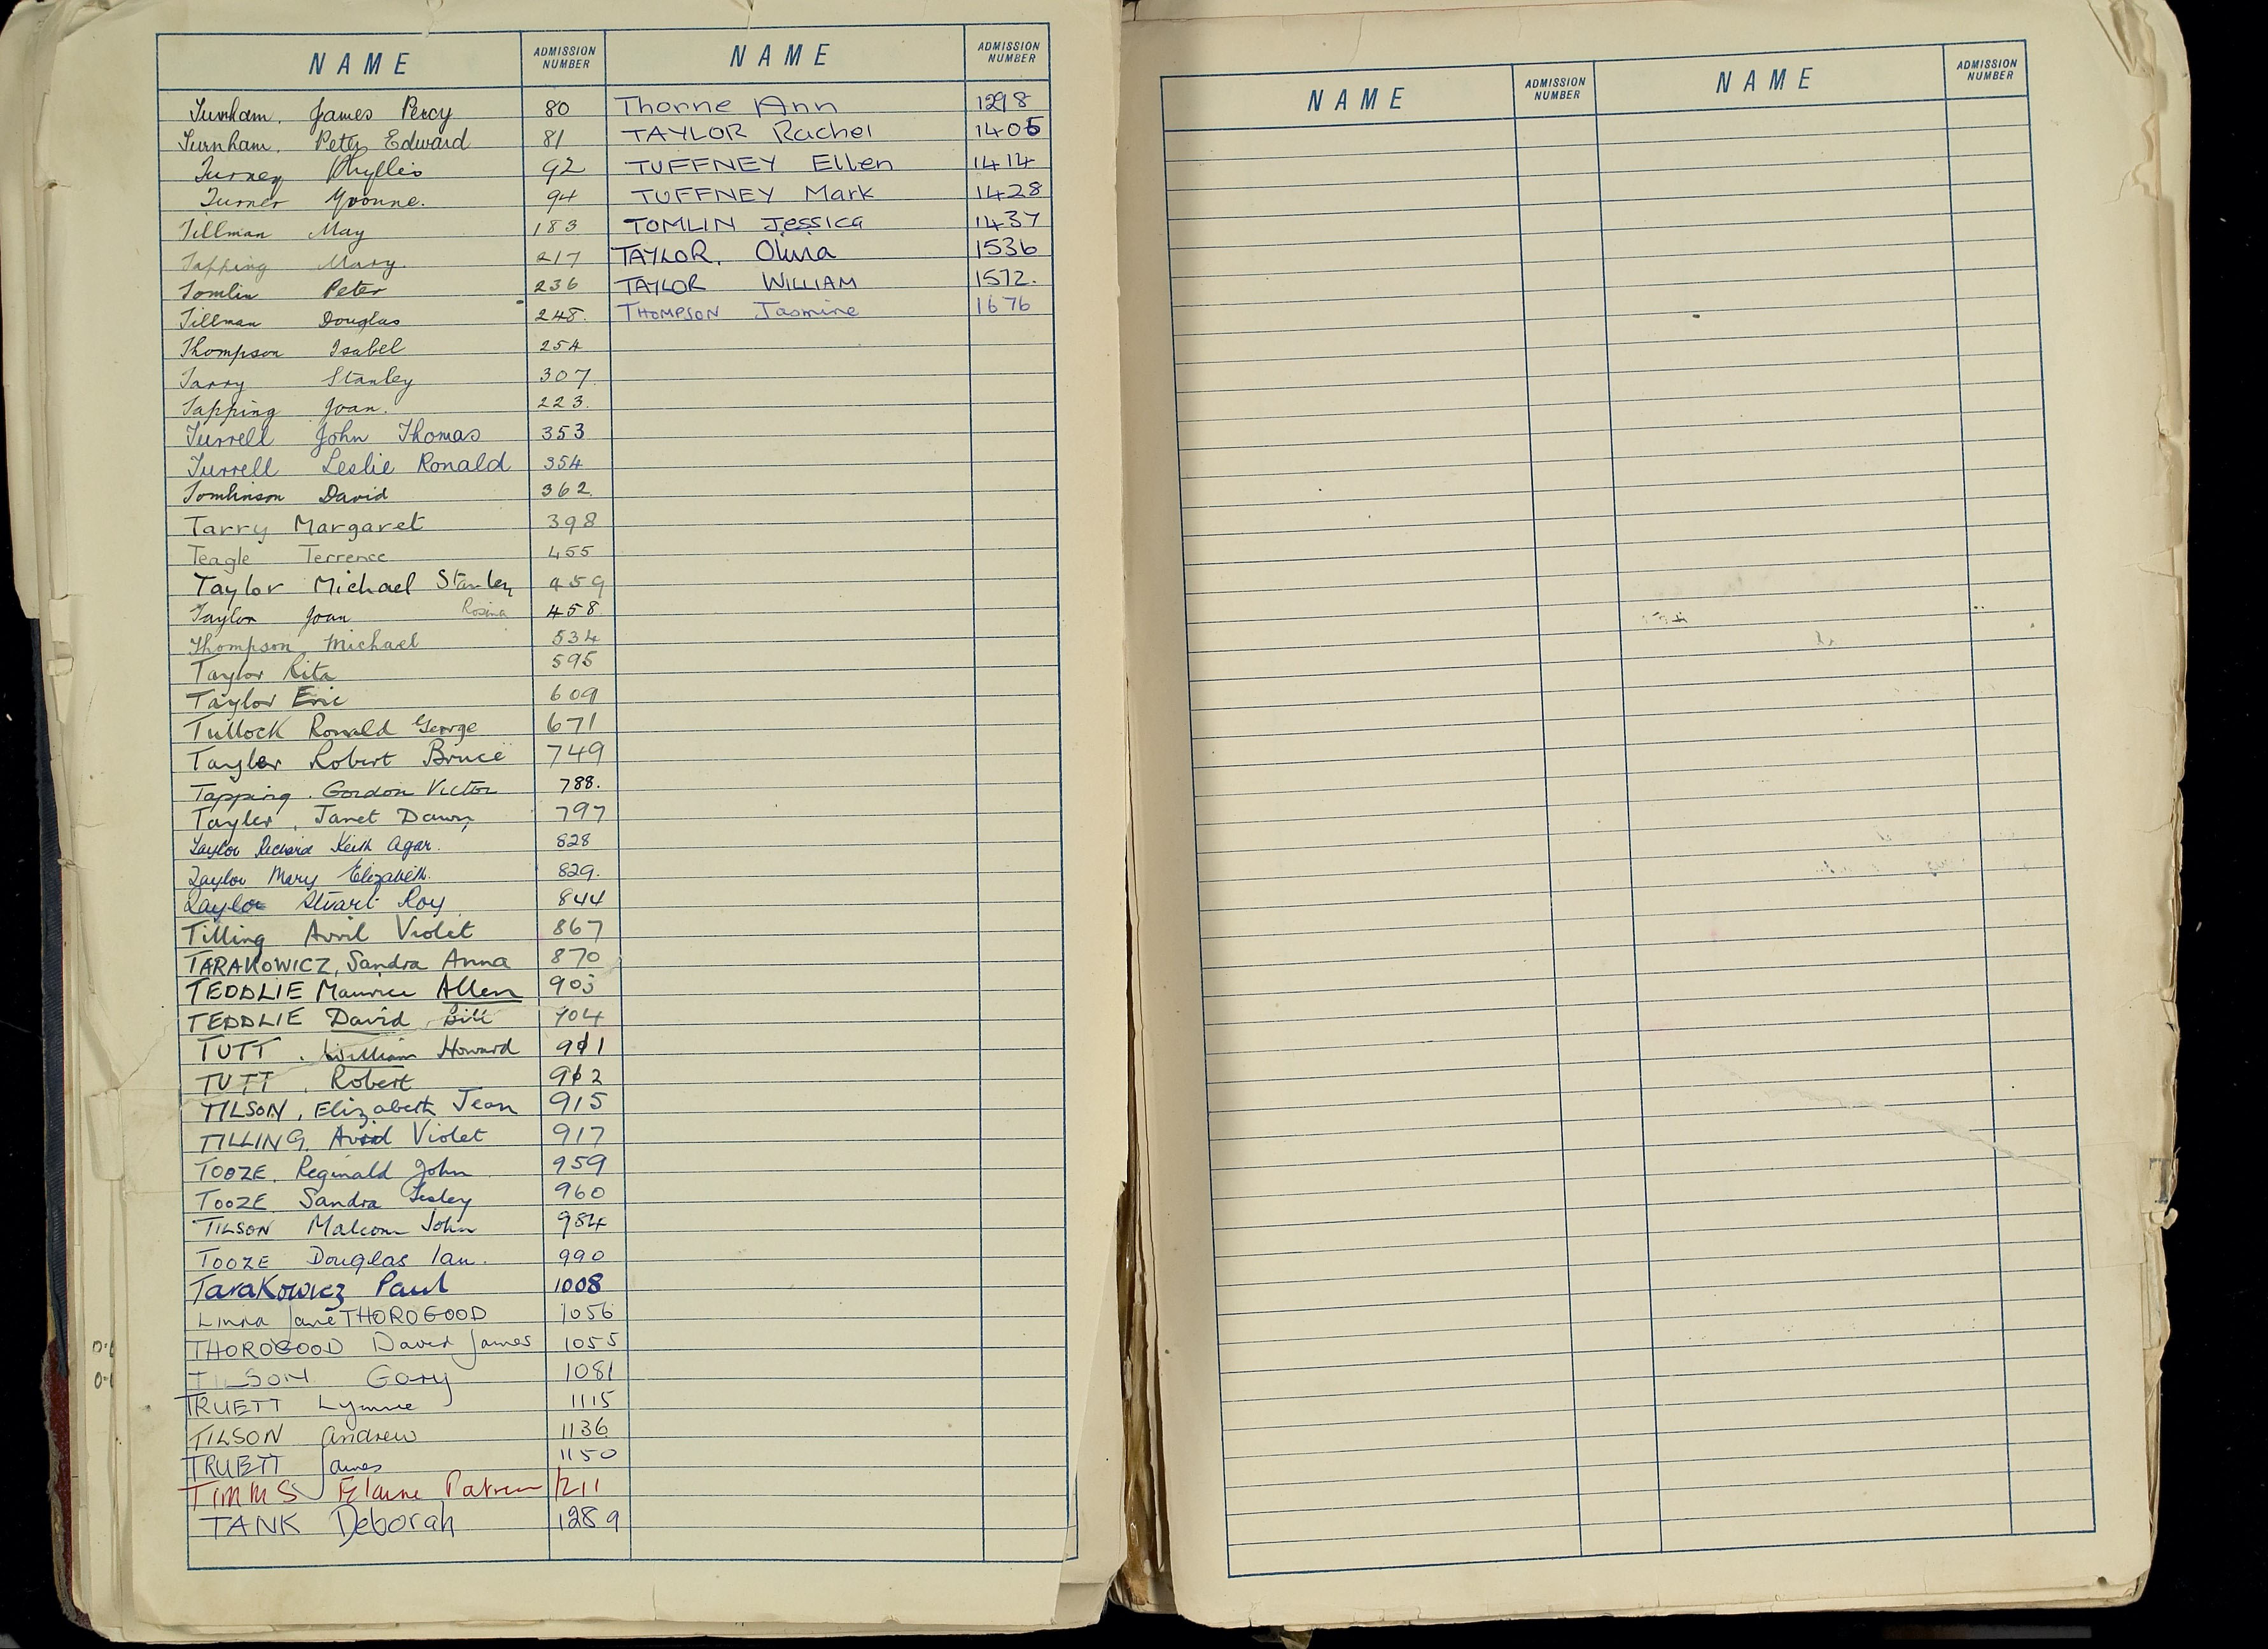 NAME ADMISSION NUMBER NAME ADMISSION NUMBER
Turnham, James Percy 80
Turnham, Peter Edward 81
Turney Phyllis 92
Turner Yvonne. 94
Tillman May 183
Tapping Mary. 217
Tomlin Peter 236
Tillman Douglas 248.
Thompson Isabel 254
Tarry Stanley 307.
Tapping Joan. 223.
Turrell John Thomas 353
Turrell Leslie Ronald 354
Tomlinson David 362.
Tarry Margaret 398
Teagle Terrence 455
Taylor Michael Stanley 459
Taylor Joan Rosina 458
Thompson, Michael 534
Taylor Rita 595
Taylor Eric 609
Tullock Ronald George 671
Tayler Robert Bruce 749
Tapping. Gordon Victor 788.
Tayler, Janet Dawn 797
Taylor Richard Keith Agar. 828
Taylor Mary Elizabeth. 829.
Taylor Stuart Roy 844
Tilling Avril Violet 867
TARAKOWICZ, Sandra Anna 870
TEDDLIE Maurice Allen 903
TEDDLIE David Bill 904
TUTT. William Howard 911
TUTT. Robert 912
TILSON, Elizabeth Jean 915
TILLING. Avril Violet 917
TOOZE. Reginald John 959
TOOZE Sandra Lesley 960
TILSON Malcom John 984
TOOZE Douglas Ian. 990
TaraKowicz Paul 1008
Linda Jane THOROGOOD 1056
THOROGOOD David James 1055
TILSON Gary 1081
TRUETT Lynne 1115
TILSON Andrew 1136
TRUETT James 1150
TIMMS Elaine 1211
TANK Deborah 1289
Thorne Ann 1298
TAYLOR Rachel 1405
TUFFNEY Ellen 1414
TUFFNEY Mark 1428
TOMLIN Jessica 1437
TAYLOR. Olivia 1536
TAYLOR WILLIAM 1572.
THOMPSON Jasmine 1676
NAME ADMISSION NUMBER NAME ADMISSION NUMBER